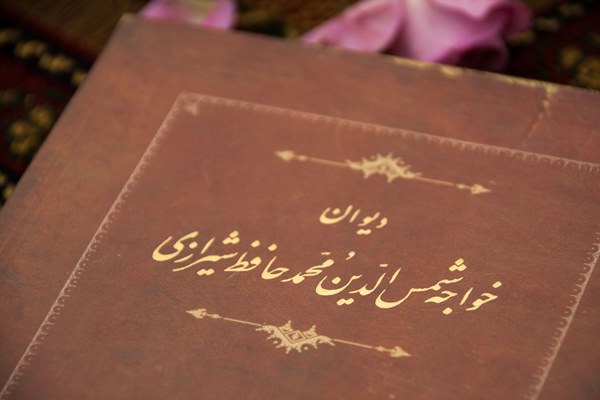 دیوان
خواجه شمس الدّینُ محمّد حافظ شیرازی